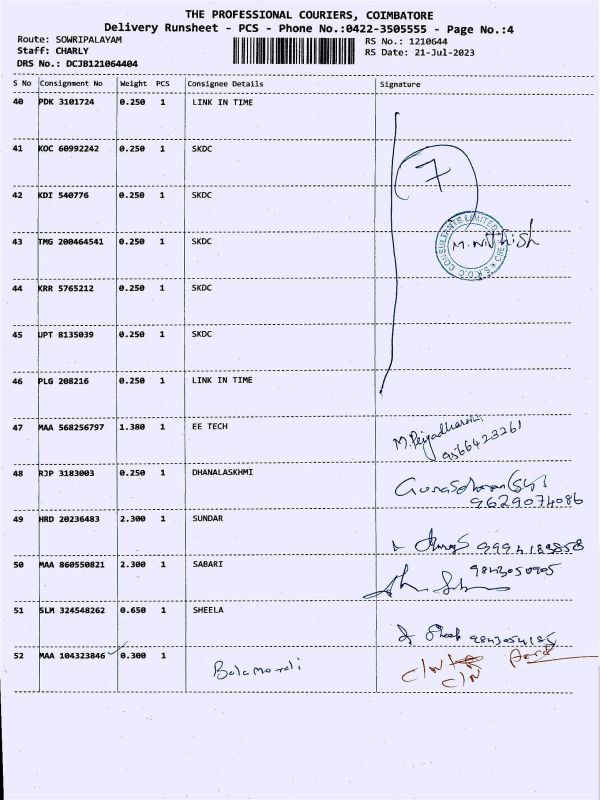 THE PROFESSIONAL COURIERS, COIMBATORE
Delivery Runsheet - PCS - Phone No.:0422-3505555 - Page No.:4
Route: SOWRIPALAYAM
RS No.: 1210644
Staff: CHARLY
RS Date: 21-Jul-2023
DRS No.: DCJB121064404
S No Consignment No Weight PCS Consignee Details Signature
40 PDK 3101724 0.250 1 LINK IN TIME
41 KOC 60992242 0.250 1 SKDC
7
42 KDI 540776 0.250 1 SKDC
43 TMG 200464541 0.250 1 SKDC M. Nithish
44 KRR 5765212 0.250 1 SKDC
45 UPT 8135039 0.250 1 SKDC
46 PLG 208216 0.250 1 LINK IN TIME
47 MAA 568256797 1.380 1 EE TECH
9566423261
48 RJP 3183003 0.250 1 DHANALASKHMI
9629074086
49 HRD 20236483 2.300 1 SUNDAR
50 MAA 860550821 2.300 1 SABARI
51 SLM 324548262 0.650 1 SHEELA
52 MAA 104323846 0.300 1 Balamorali
C/N